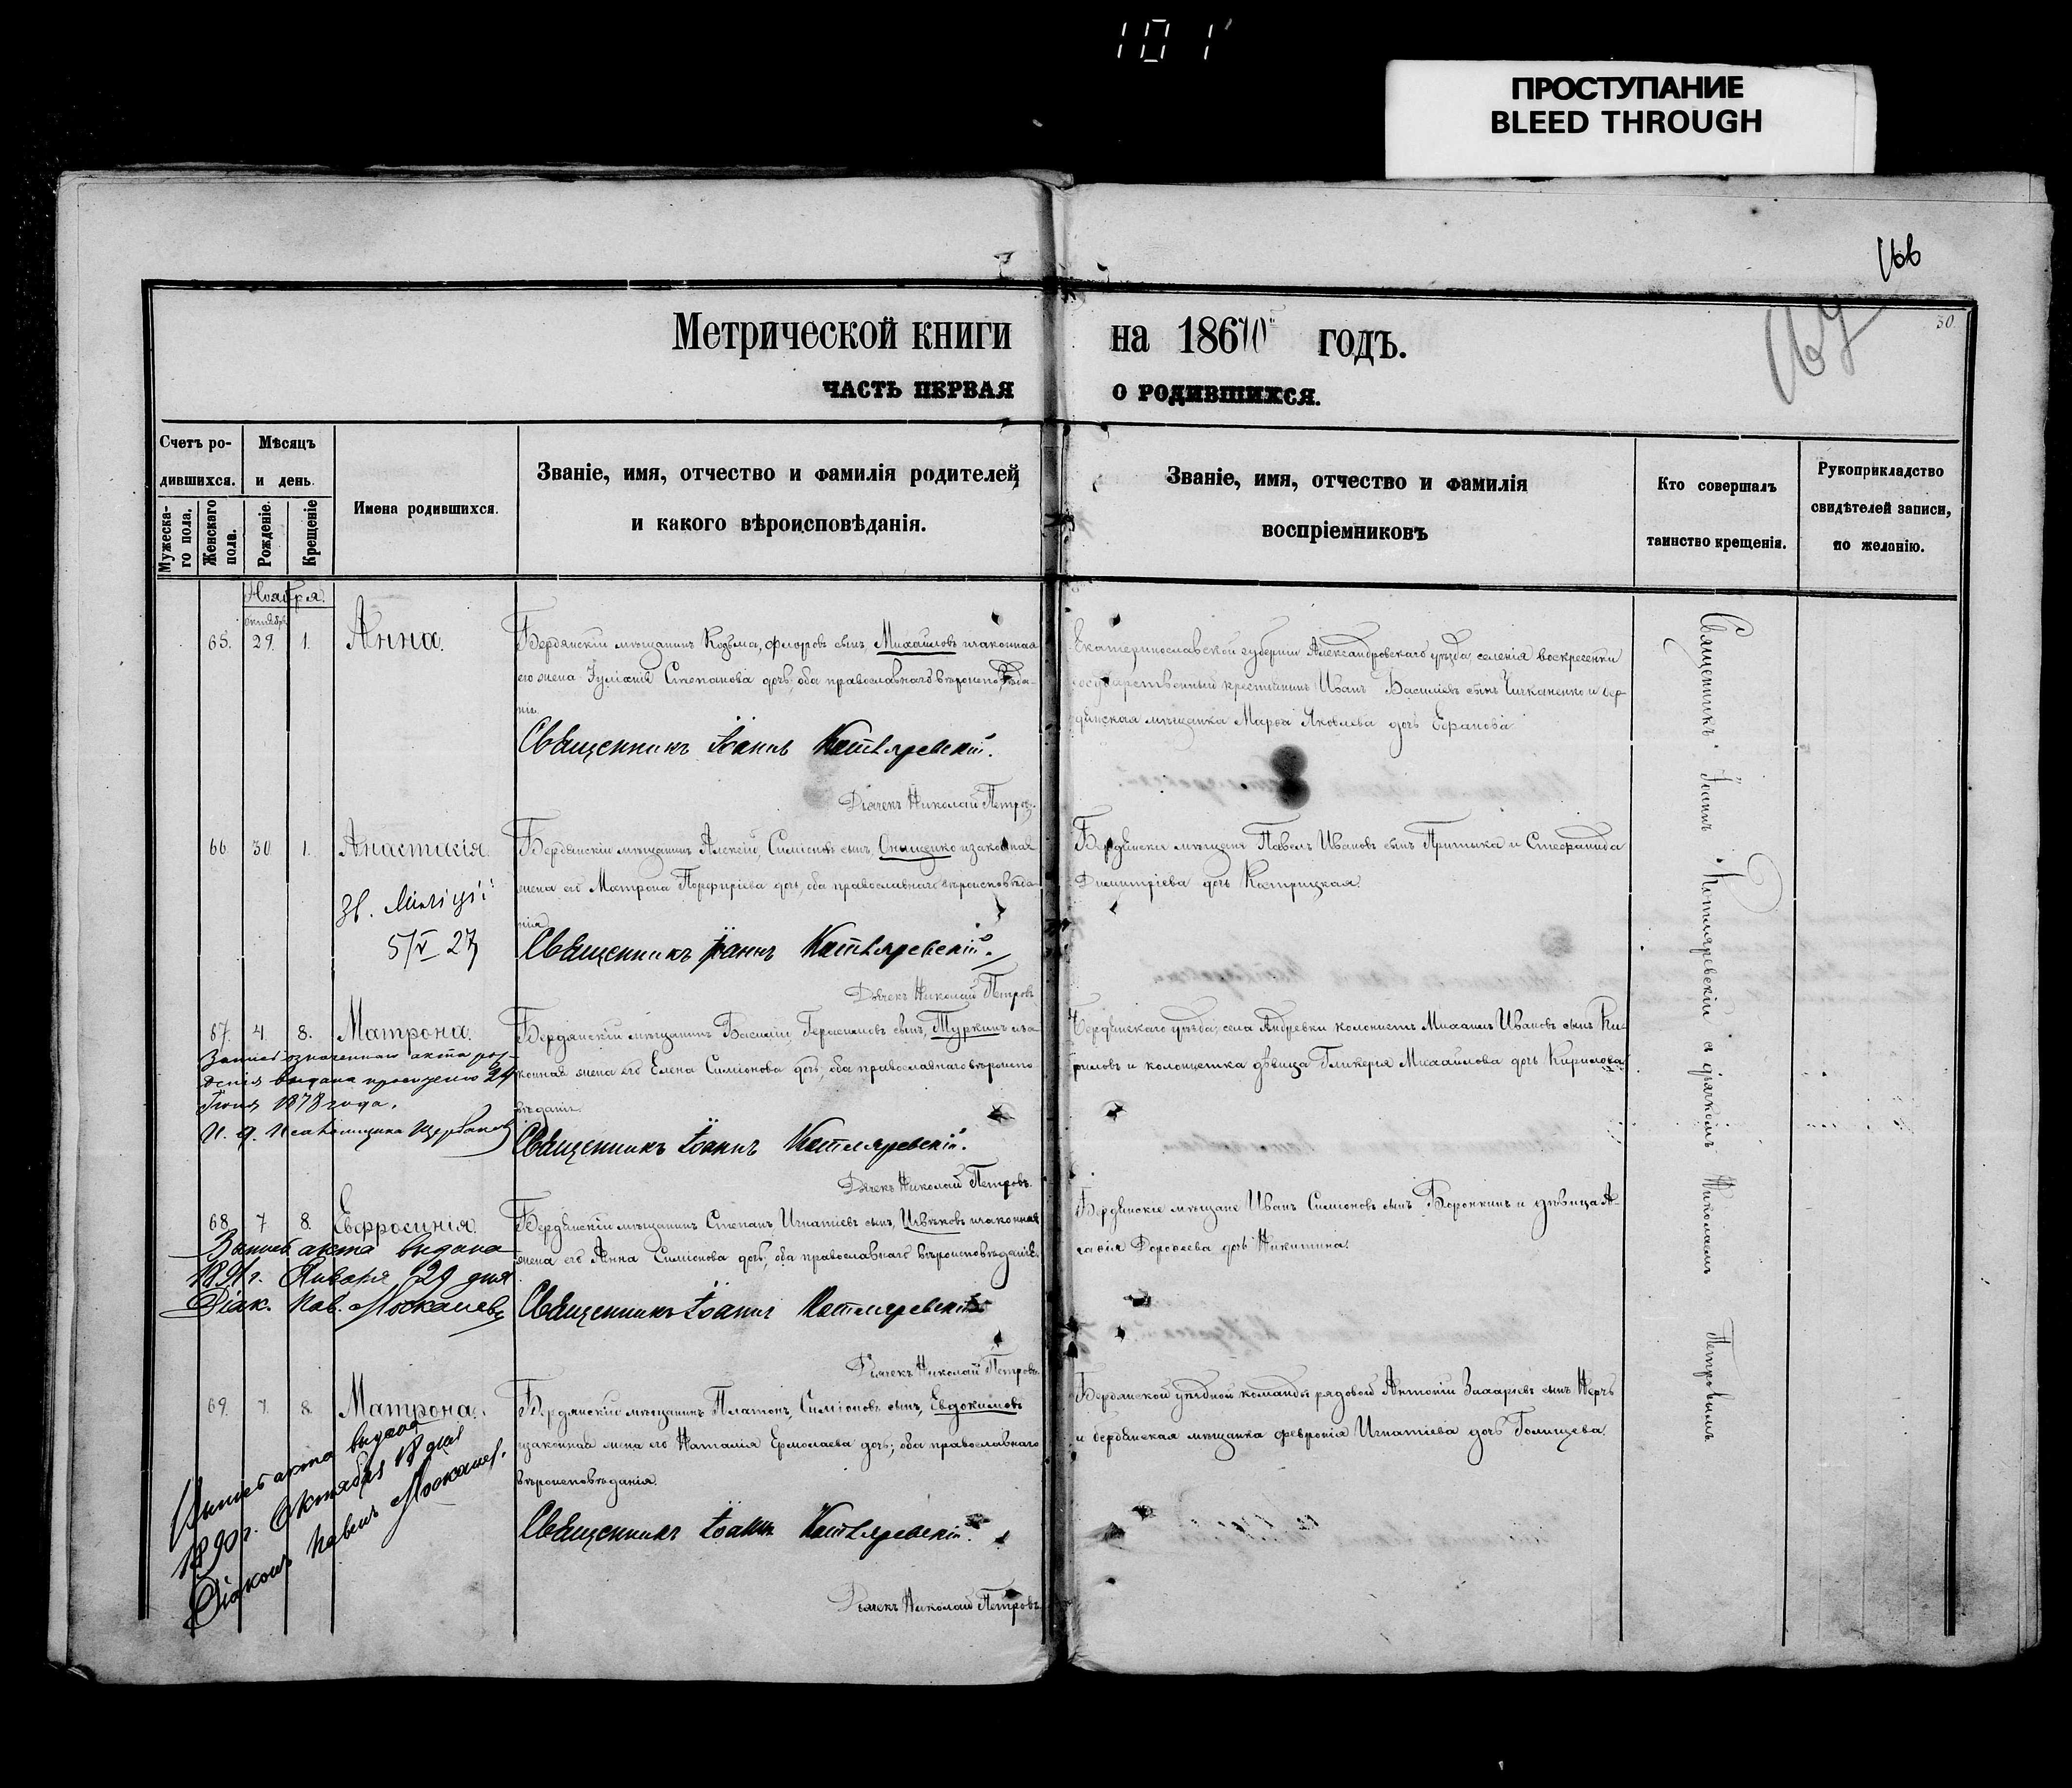 101
ПРОСТУПАНИЕ
BLEED THROUGH
166
167
30
Метрической книги на 1870 годъ.
ЧАСТЬ ПЕРВАЯ О РОДИВШИХСЯ.
Счетъ родившихся.
Мужескаго пола.
Женскаго пола.
Мѣсяцъ и день.
Рожденіе.
Крещеніе
Имена родившихся.
Званіе, имя, отчество и фамилія родителей
и какого вѣроисповѣданія.
Званіе, имя, отчество и фамилія
воспріемниковъ
Кто совершалъ
таинство крещенія.
Рукоприкладство
свидѣтелей записи,
по желанію.
Ноября.
октября
65. 29. 1. Анна.
Бердянскій мѣщанинъ Козьма, Флоровъ сынъ, Михайловъ изаконная
его жена Іуліанія Степанова дочь, оба православнаго вѣроисповѣда-
нія.
Священникъ Іоаннъ Котляревскій.
Дьячекъ Николай Петровъ.
Екатеринославской губерніи Александровскаго уѣзда, селенія воскресенки
государственный крестьянинъ Иванъ Василіевъ сынъ Чичканенко и бер-
дянская мѣщанка Марѳа Яковлева дочь
66 30 1. Анастасія.
Бердянскій мѣщанинъ Алексій, Симіоновъ сынъ, Онищенко изаконная
жена его Матрона Порфиріева дочь, оба православнаго вѣроисповѣда-
нія.
Священникъ Іоаннъ Котляревскій.
Дьячекъ Николай Петровъ
Бердянскій мѣщанинъ Павелъ Ивановъ сынъ Притыка и Стефанида
Димитріева дочь
Зв. Міліції
5/V 27
67. 4 8. Матрона.
Бердянскій мѣщанинъ Василій, Герасимовъ сынъ, Туркинъ иза-
конная жена его Елена Симіонова дочь, оба православнаго вѣроиспо-
вѣданія.
Священникъ Іоаннъ Котляревскій.
Дьячекъ Николай Петровъ.
Бердянскаго уѣзда, села Андревки колонистъ Михаилъ Ивановъ сынъ Ки-
риловъ и колонистка дѣвица Гликерія Михаилова дочь Кирилова
означеннаго акта рож-
денія выдана 24
1878 года.
И. д. Псаломщика Щербаковъ
68 7 8. Евфросинія.
Бердянскій мѣщанинъ Степанъ, Игнатіевъ сынъ, изаконная
жена его Анна Симіонова дочь, оба православнаго вѣроисповѣданія.
Священникъ Іоаннъ Котляревскій
Дьячекъ Николай Петровъ.
Бердянскіе мѣщане Иванъ Симіоновъ сынъ Воронкинъ и дѣвица А-
гафія Дороѳеева дочь Никитина.
Выпись акта выдана
1891 г. Января 29 дня
Діак. Пав. Москалевъ
69. 7. 8. Матрона.
Бердянскій мѣщанинъ Платонъ, Симіоновъ сынъ, Евдокимовъ
изаконная жена его Наталія Ермолаева дочь; оба православнаго
вѣроисповѣданія.
Священникъ Іоаннъ Котляревскій.
Дьячекъ Николай Петровъ.
Бердянской уѣздной команды рядовой Антоній Захаріевъ сынъ
и бердянская мѣщанка Февронія Игнатіева дочь Голищева.
Выпись акта выдана
1890 г. Октября 18 дня
Діаконъ Павелъ Москалев.
Священникъ Іоаннъ Котляревскій съ дьячкомъ Николаемъ Петровымъ